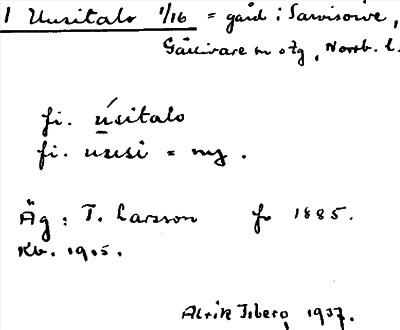 1 Uusitalo 1/16 = gård i Sarvisoive,
Gällivare sn o tg, Norrb. l.
fi. ú̲sitalo
fi. uusi = ny.
Äg: T. Larsson fr 1885.
Kb. 1915.
Alrik Isberg 1937.